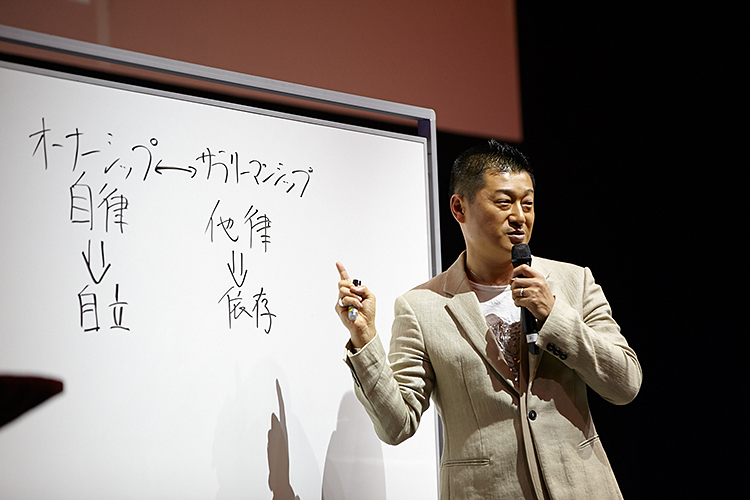 オーナーシップ↔サラリーマンシップ
自律 他律
⇓ ⇓
自立 依存